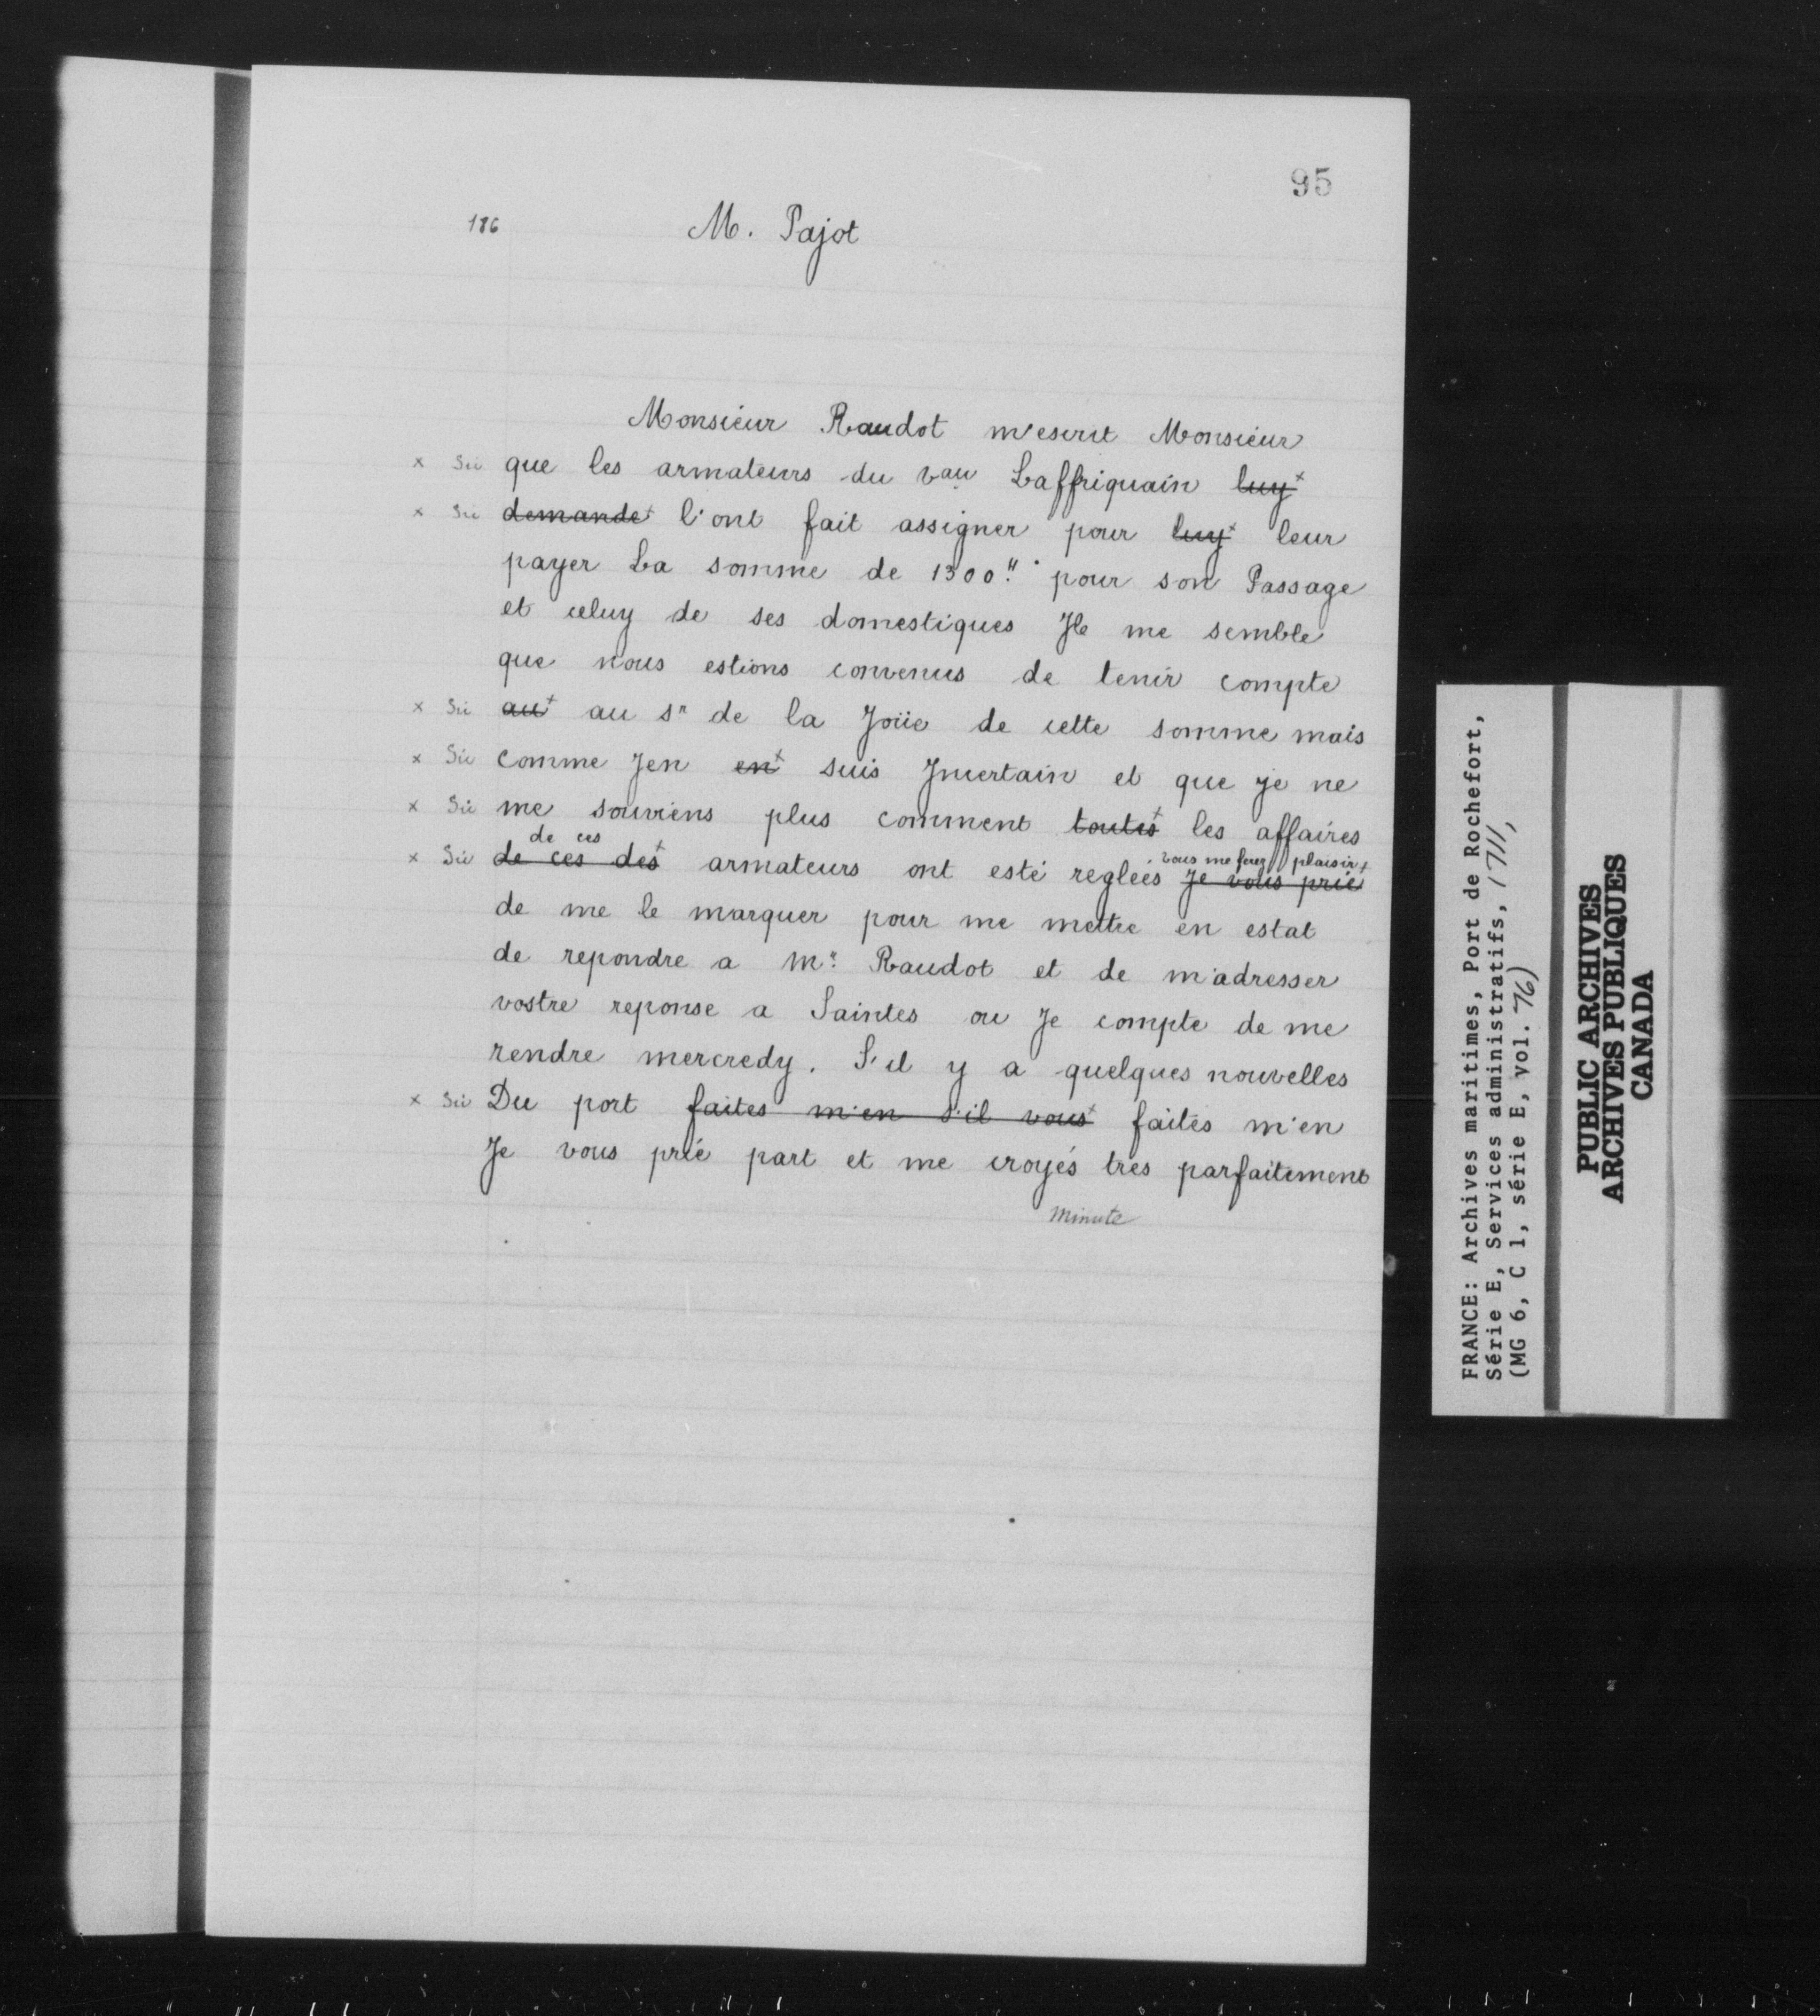 95
186 M. Pajot
Monsieur Raudot m'escrit Monsieur
x Sic que les armateurs du vau Laffriquain luy x
x Sic demande x l'ont fait assigner pour luy x leur
payer La somme de 1300" pour son Passage
et celuy de ses domestiques Il me semble
que nous estions convenus de tenir compte
x Sic au x au sr de la Joüe de cette somme mais
x Sic comme Jen en x suis Jncertain et que je ne
x Sic me souviens plus comment toutes x les affaires
de ces vous me ferez plaisir
x Sic de ces des x armateurs ont esté reglées Je vous prie x
de me le marquer pour me mettre en estat
de repondre a Mr. Raudot et de m'adresser
vostre reponse a Saintes ou Je compte de me
rendre mercredy. S'il y a quelques nouvelles
x Sic Du port faites m'en s'il vous x faites m'en
Je vous prie part et me croyés tres parfaitement
minute
FRANCE: Archives maritimes, Port de Rochefort,
Série E, Services administratifs, 1711,
(MG 6, C 1, série E, vol. 76)
PUBLIC ARCHIVES
ARCHIVES PUBLIQUES
CANADA